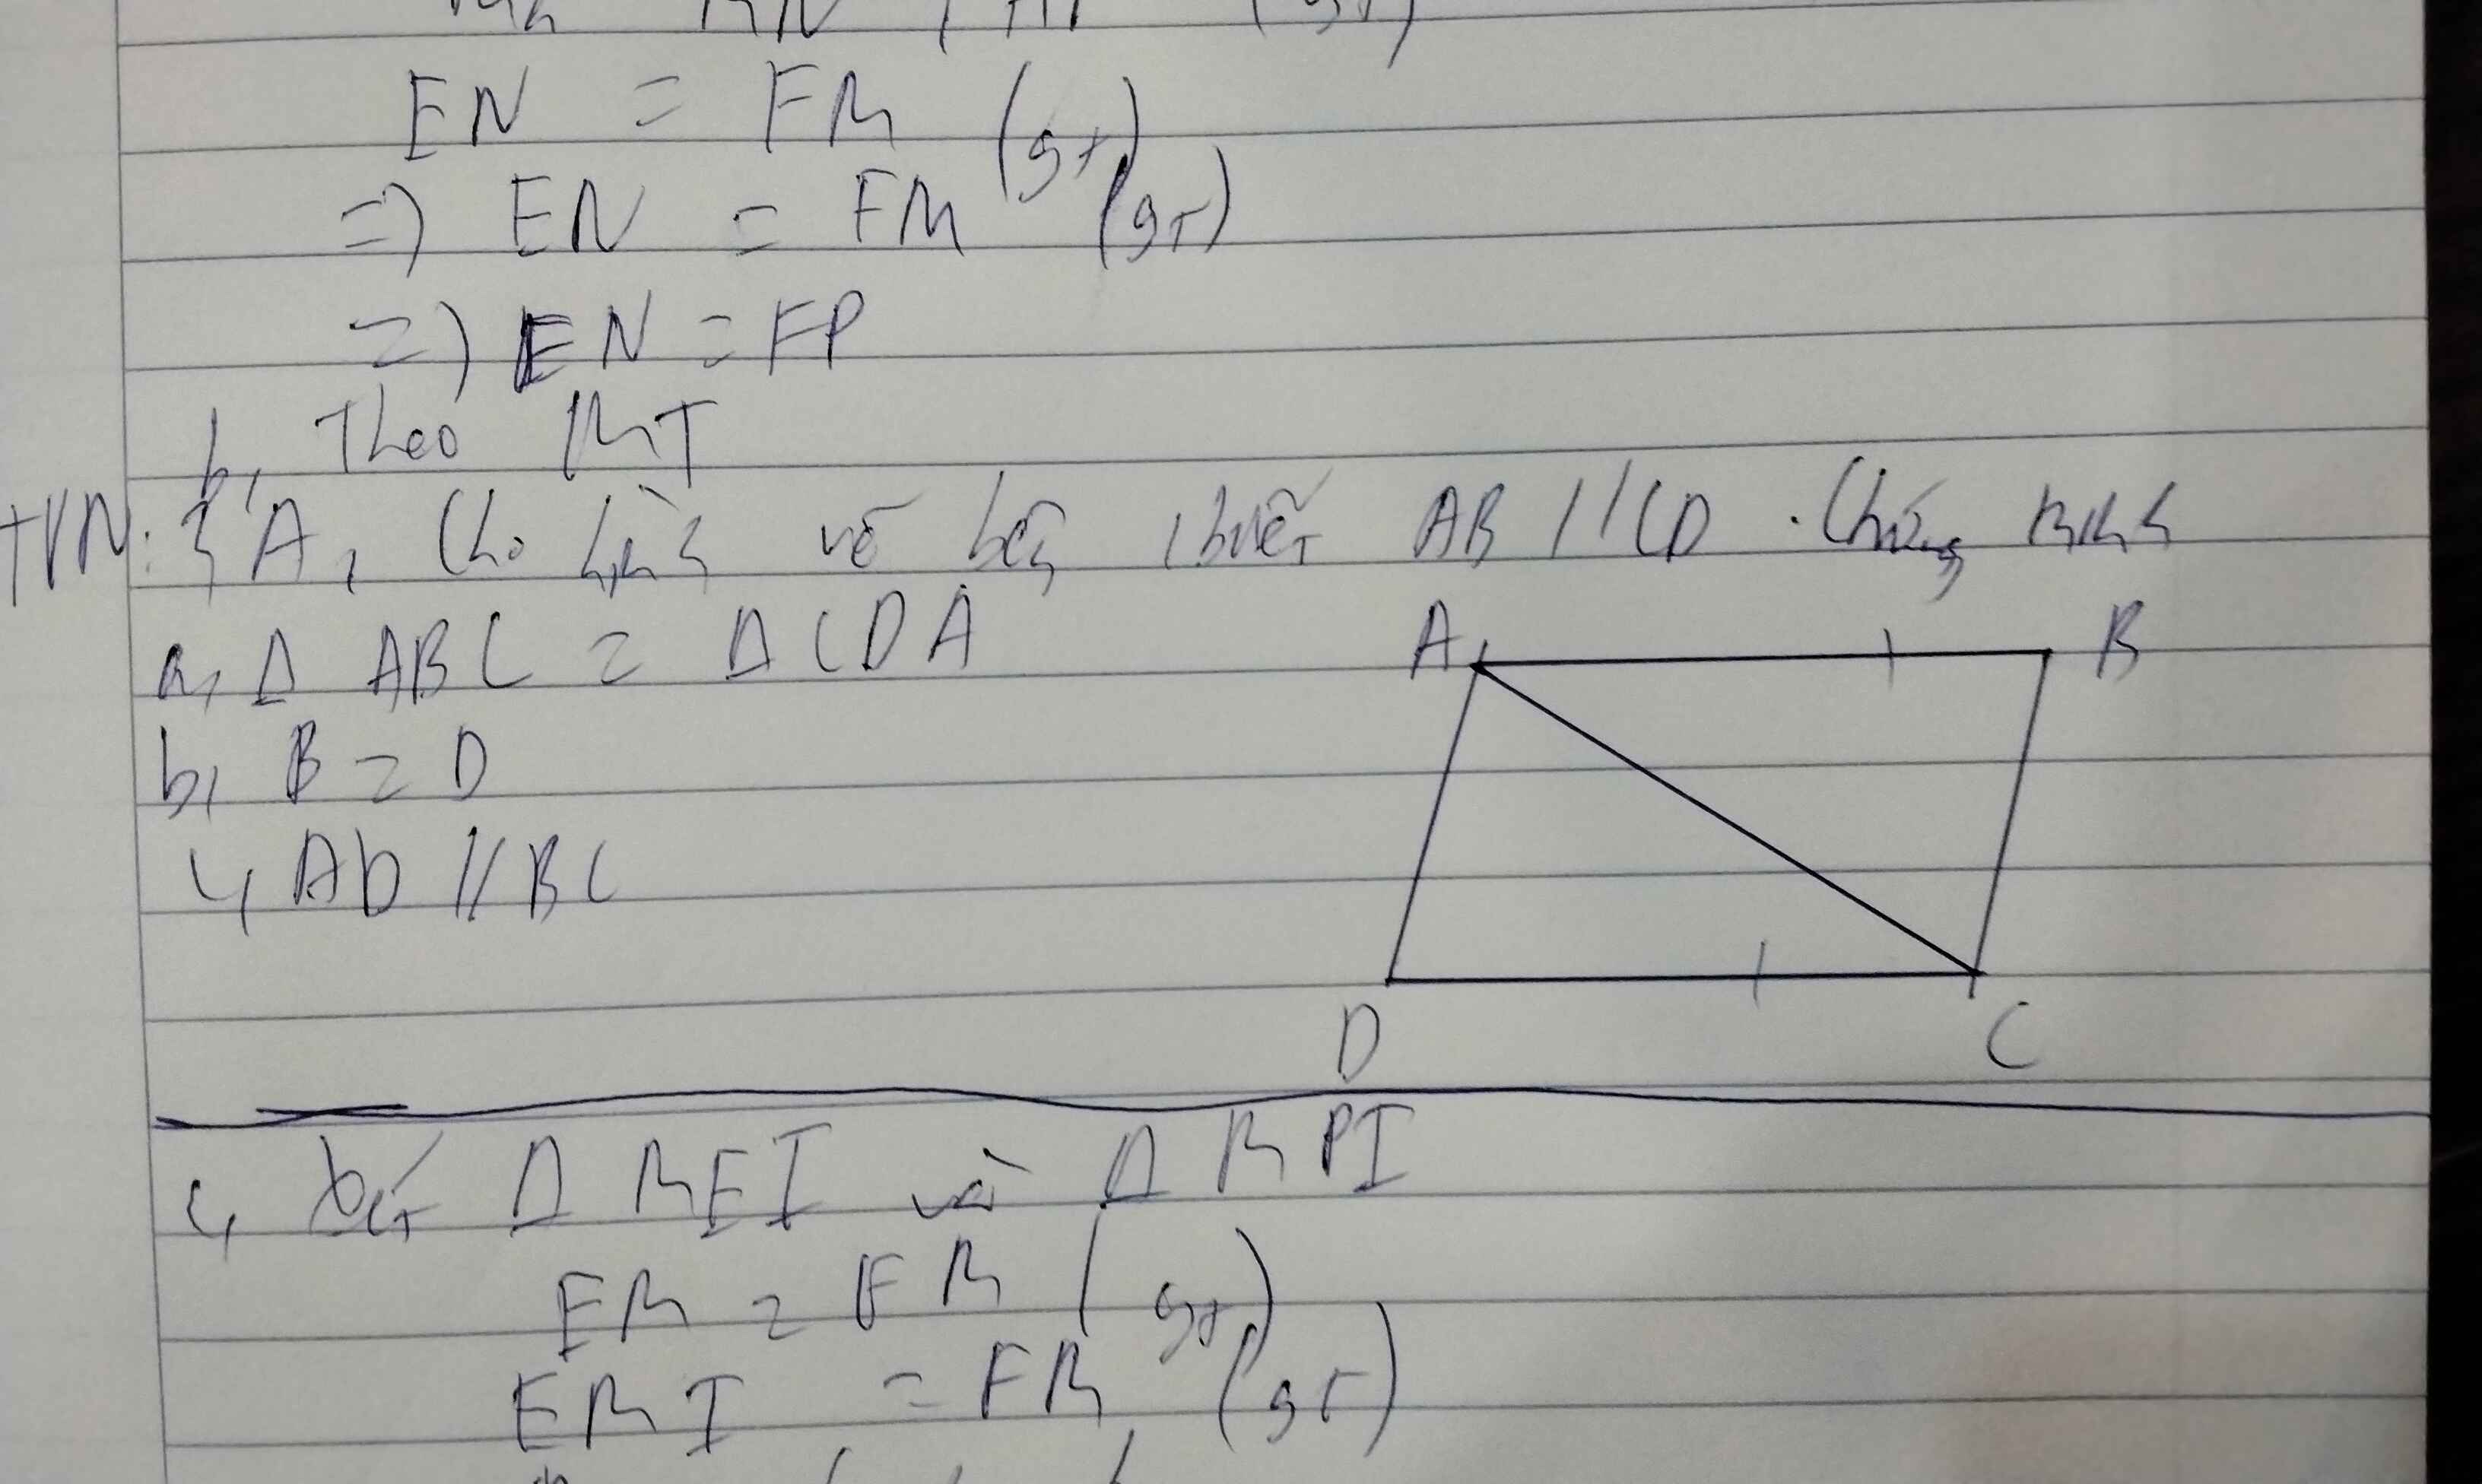 EN = FM (gt)
=) EN = FM (gT)
=) EN = FP
b, Theo MT
BTVN: A, Cho hình vẽ bên biết AB // CD . Chứng minh
a, Δ ABC = Δ CDA
A B
b, B = D
c, AD // BC
D C
c, Xét Δ MEI và Δ MPI
EM = FM (gt)
EMI = FM (gT)